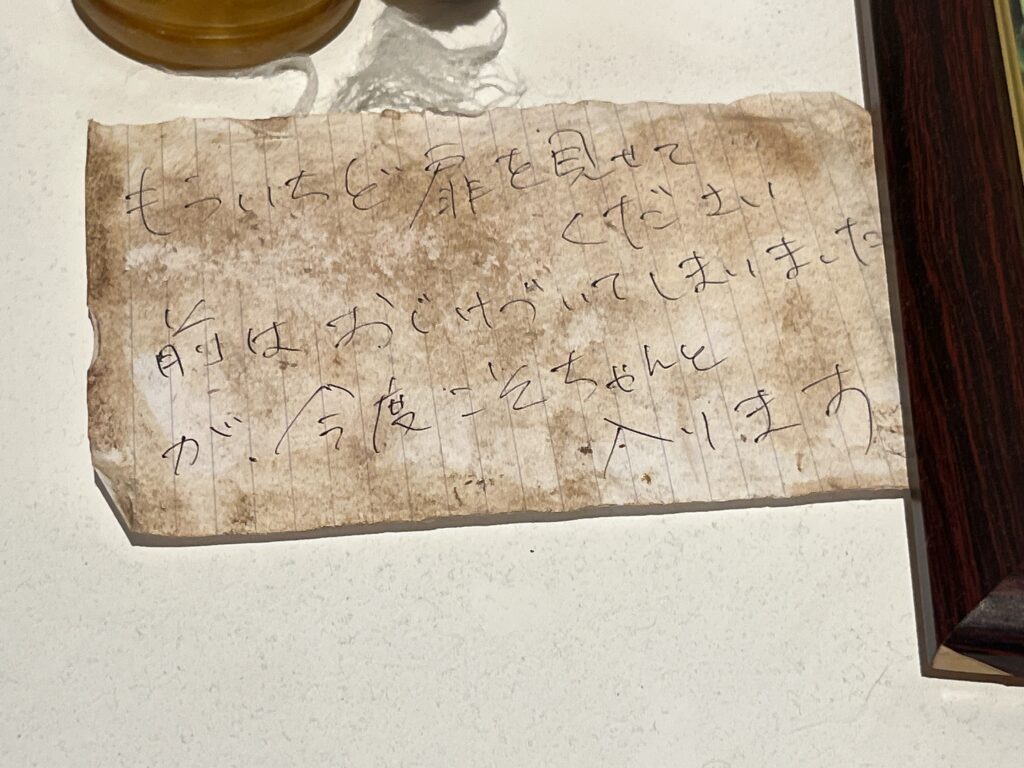 もういちど扉を見せて
ください
前はおじけづいてしまいました
が、今度こそちゃんと
入ります